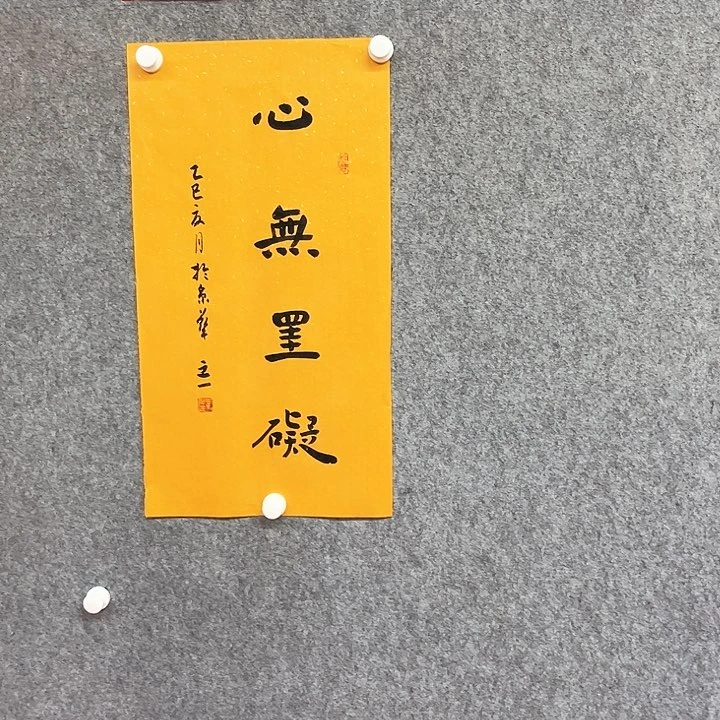 心無罣礙
乙巳亥月於京華 立一